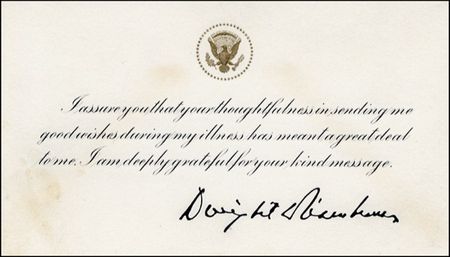 I assure you that your thoughtfulness in sending me
good wishes during my illness has meant a great deal
to me. I am deeply grateful for your kind message.
Dwight Eisenhower